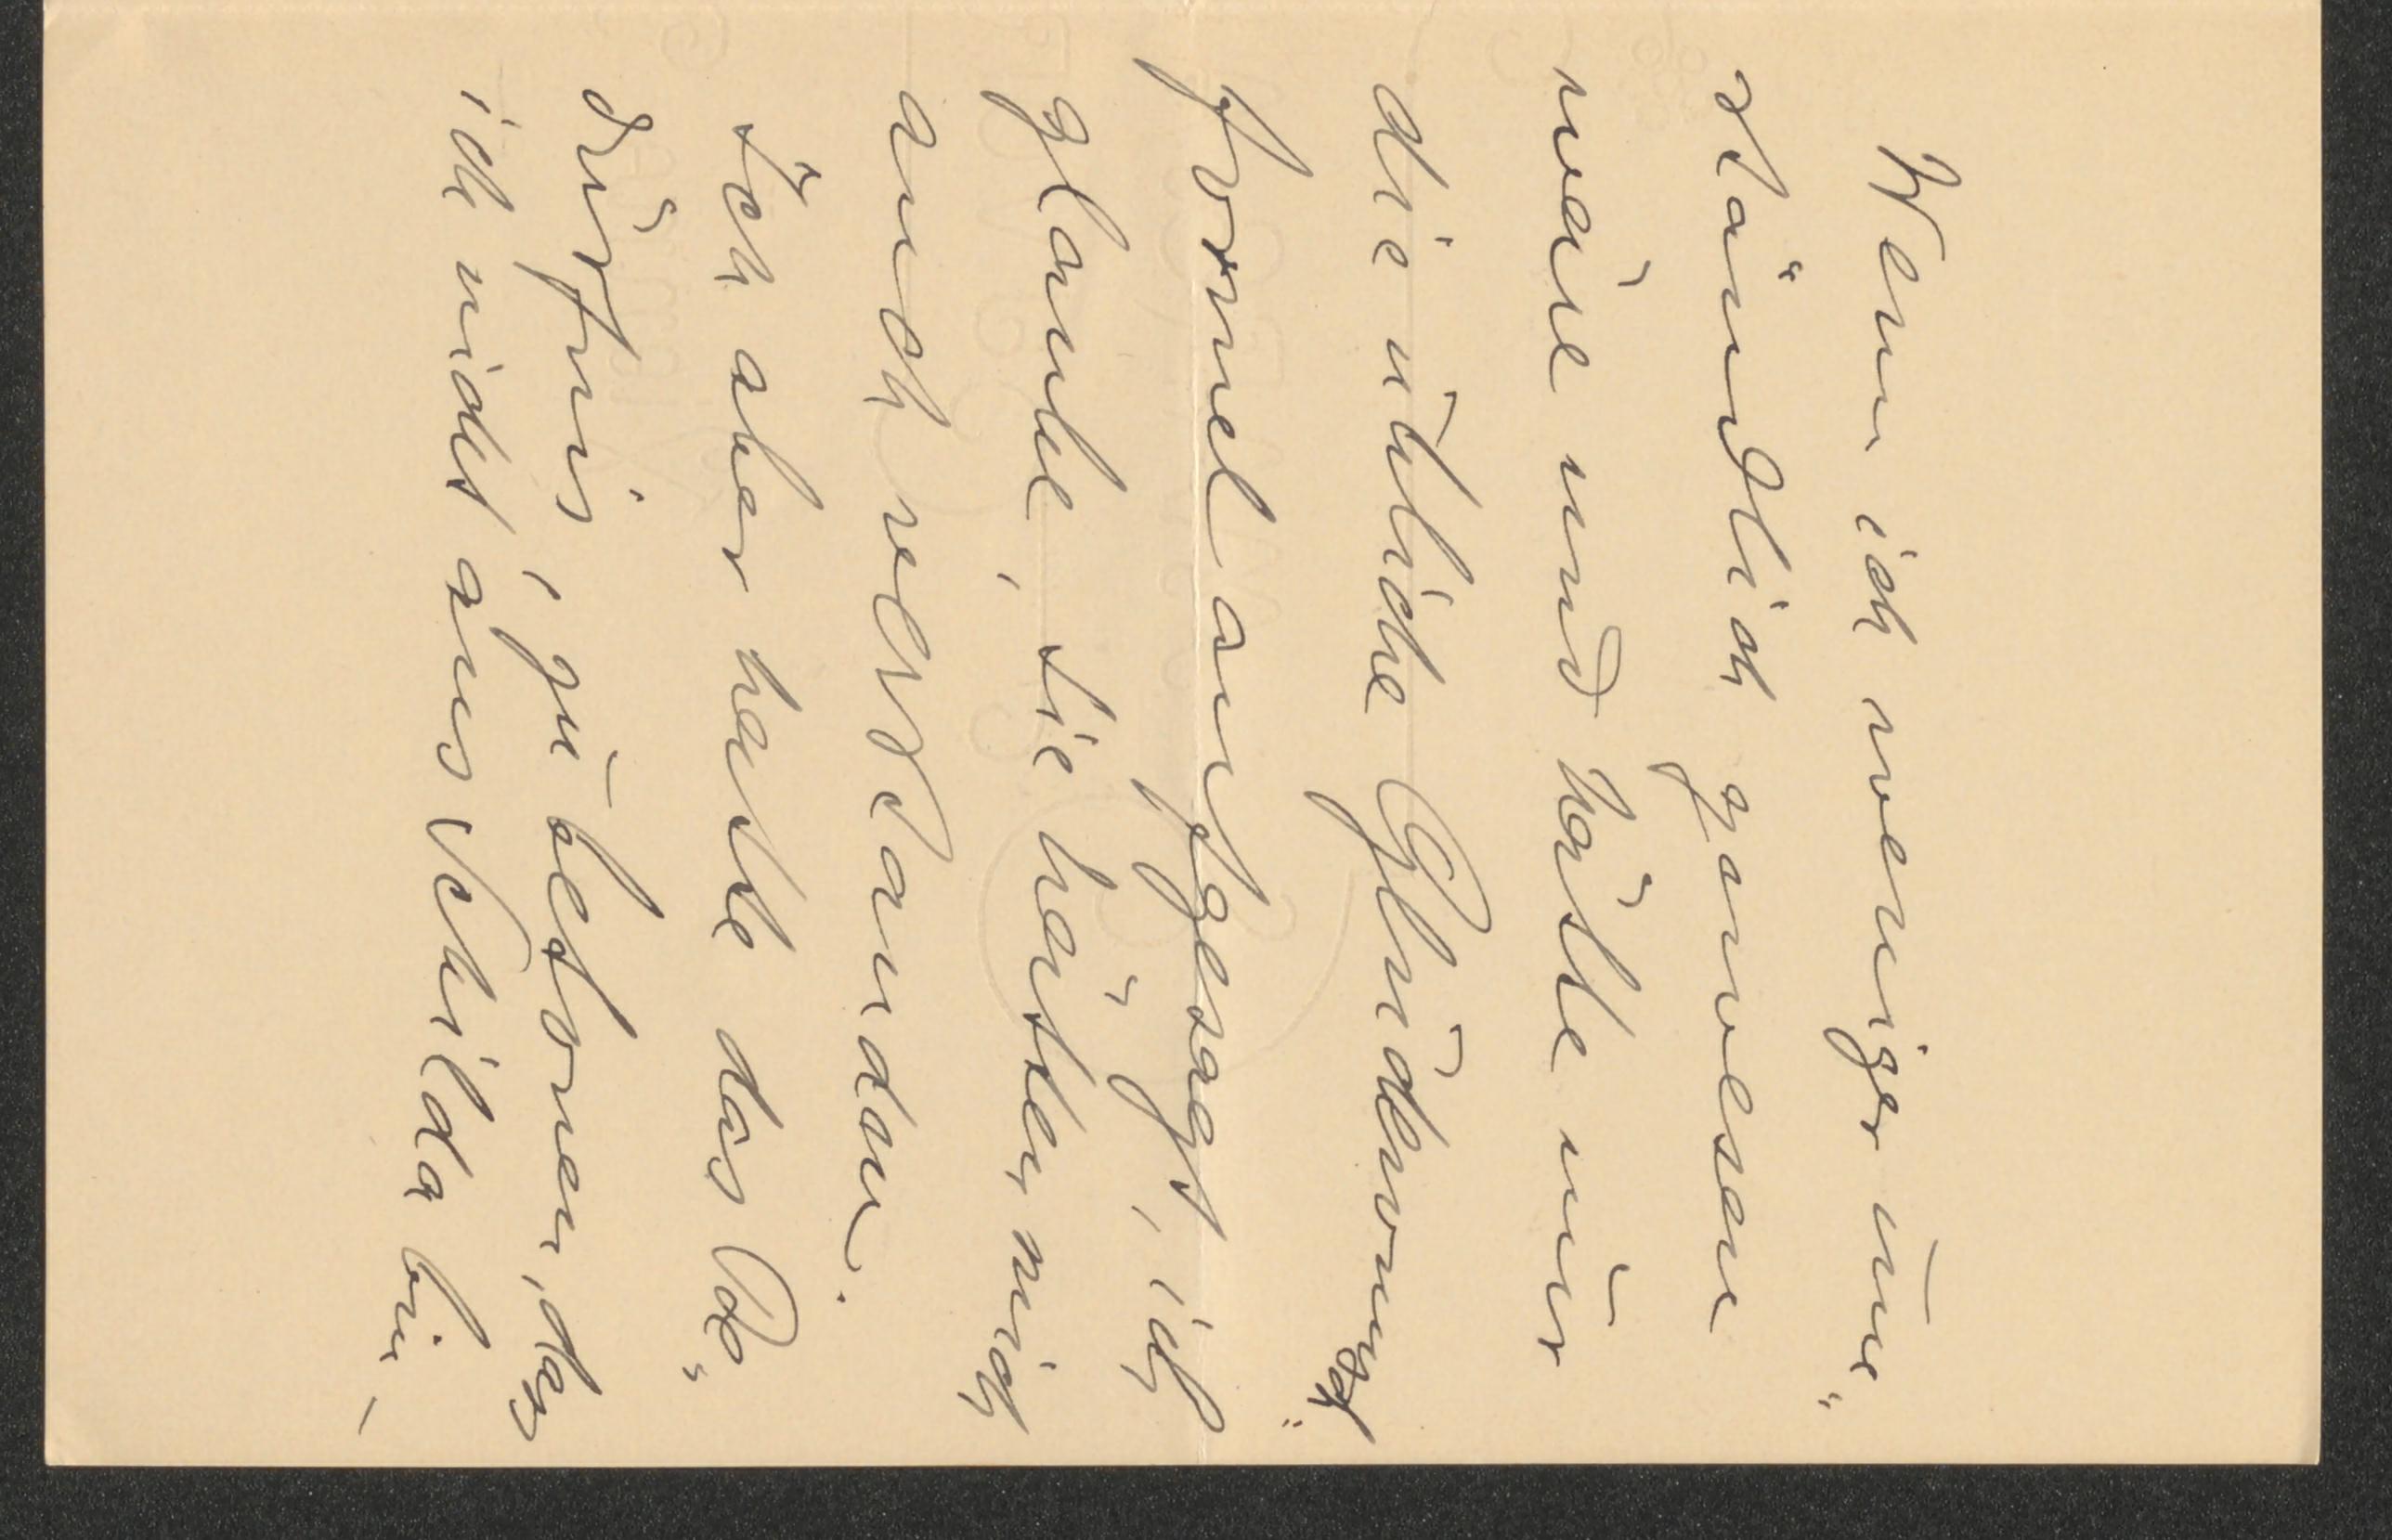 Wenn ich weniger um-
ständlich gewesen
wäre und hätte nur
die übliche Glückwunsch-
formel aufgesagt, ich
glaube, Sie hätten mich
auch verstanden.
Ich aber hatte das Be-
dürfnis, zu betonen, dass
ich nicht aus Schilda bin,